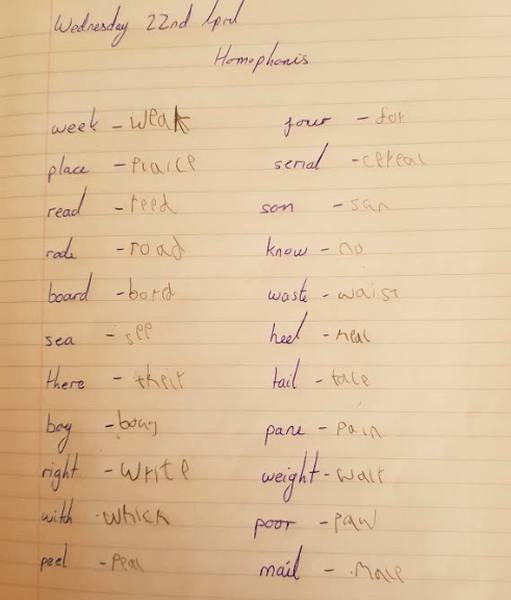 Wednesday 22nd April
Homophonis
week - weak
place - Plaice
read - reed
rode - road
board - bord
sea - see
there - their
boy - bouy
right - write
with - which
peel - peal
four - for
serial - cereal
son - sun
know - no
waste - waist
heel - heal
tail - tale
pane - pain
weight - wait
poor - paw
mail - male